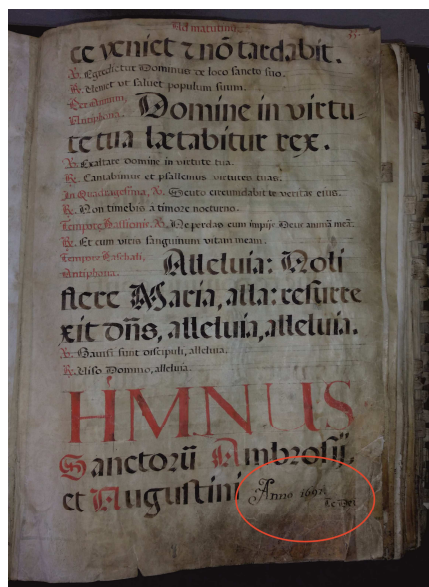 Ad matutinũ.
55.
ce veniet ⁊ nõ tardabit.
℣. Egredietur Dominus de loco sancto suo.
℟. Veniet ut salvet populum suum.
Per Annum,
Antiphona. Domine in virtu-
te tua lætabitur rex.
℣. Exaltare domine in virtute tua.
℟. Cantabimus et psallemus virtutes tuas.
In Quadragesima, ℣. Scuto circumdabit te veritas eius.
℟. Non timebis a timore nocturno.
Tempore Passionis. ℣. Ne perdas cum impijs Deus animã meã.
℟. Et cum viris sanguinum vitam meam.
Tempore Paschali,
Antiphona. Alleluia: Noli
flere Maria, alla: resurre
xit dñs, alleluia, alleluia.
℣. Gavisi sunt discipuli, alleluia.
℟. Viso Domino, alleluia.
HIMNUS
Sanctorũ Ambrosij,
et Augustini
Anno 1697.